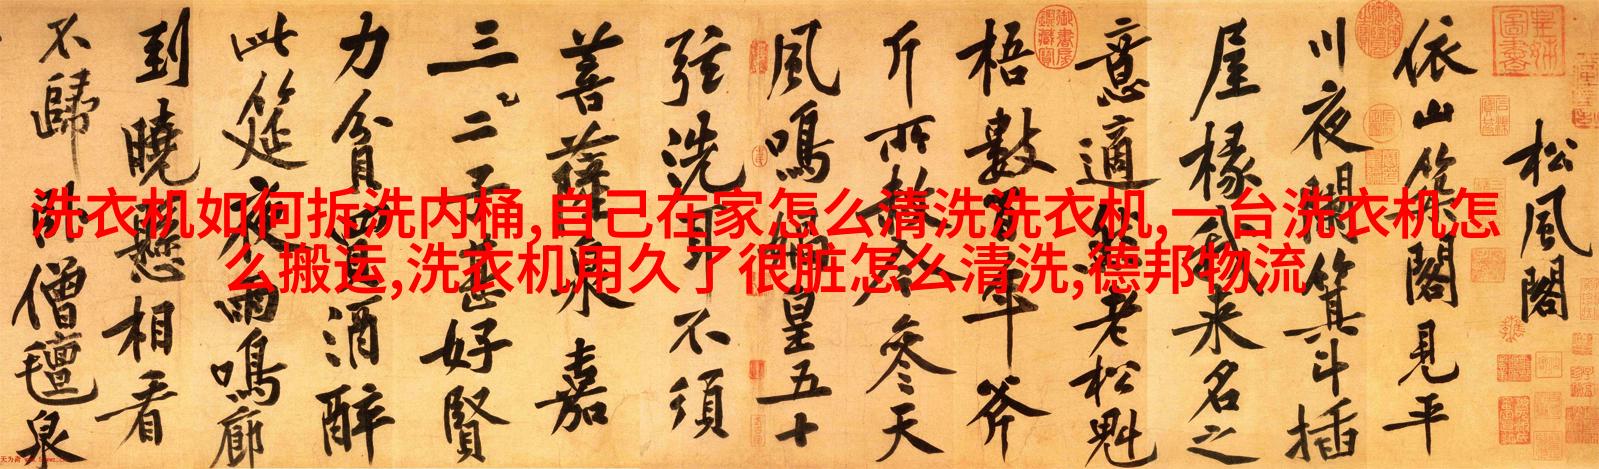 洗衣机如何拆洗内桶,自己在家怎么清洗洗衣机,一台洗衣机怎
么搬运,洗衣机用久了很脏怎么清洗,德邦物流
松風閣
依山築閣見平
川夜闌箕斗插
屋椽我來名之
意適然老松魁
梧數百年斧
斤所赦今參天
風鳴媧皇五十
弦洗耳不須
菩薩泉嘉
三二子甚好賢
力貧買酒醉
此筵夜雨鳴廊
到曉懸相看
不歸臥僧氊泉
皇姊圖書